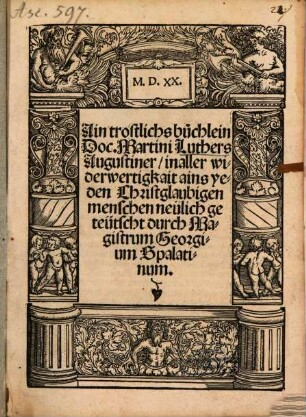 Asc. 597.
M. D. XX.
Ain trostlichs büchlein
Doc. Martini Luthers
Augustiner / in aller wi
derwertigkait ains ye
den Christglaubigen
menschen neülich ge
teütscht durch Ma
gistrum Georgi
um Spalati
num.